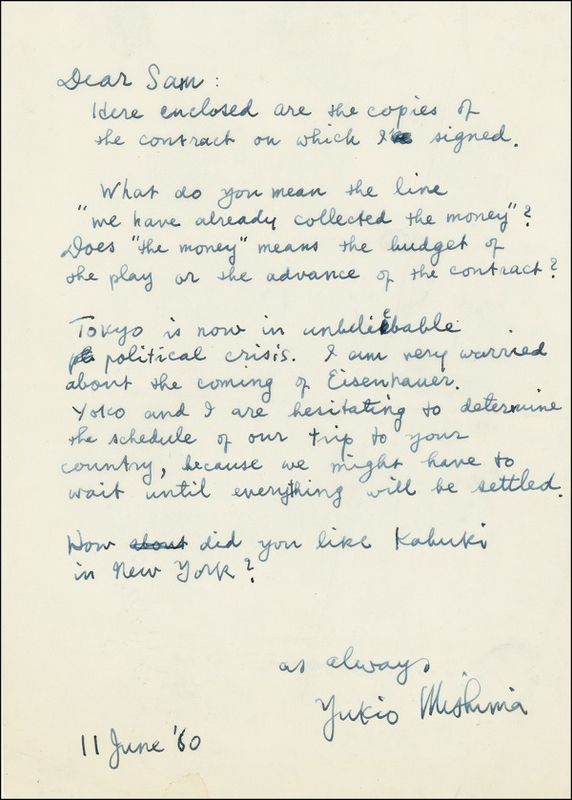 Dear Sam:
Here enclosed are the copies of
the contract on which I signed.
What do you mean the line
"we have already collected the money"?
Does "the money" means the budget of
the play or the advance of the contract?
Tokyo is now in unbeliebable
political crisis. I am very worried
about the coming of Eisenhauer.
Yoko and I are hesitating to determine
the schedule of our trip to your
country, because we might have to
wait until everything will be settled.
How about did you like Kabuki
in New York?
as always
Yukio Mishima
11 June '60